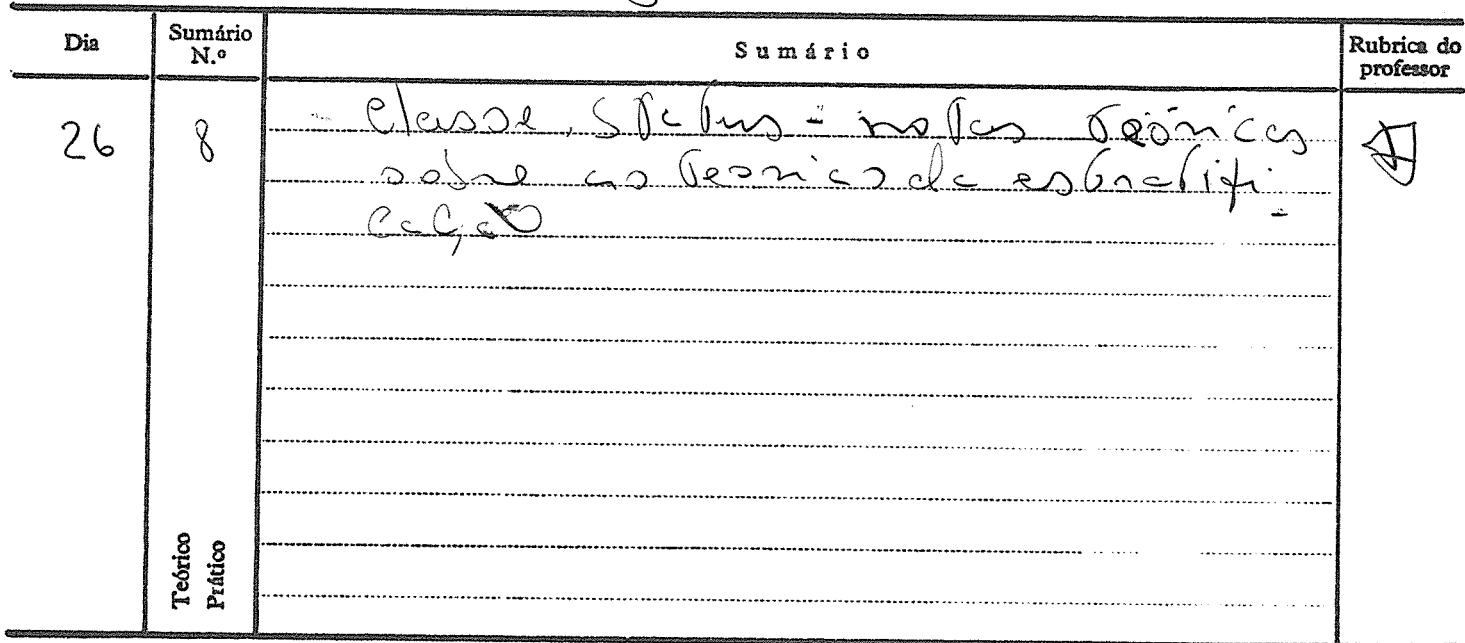 Dia
Sumário N.º
Sumário
Rubrica do professor
26
8
- Classe, Status - notas teóricas
sobre as teorias da estratifi-
cação
Teórico
Prático